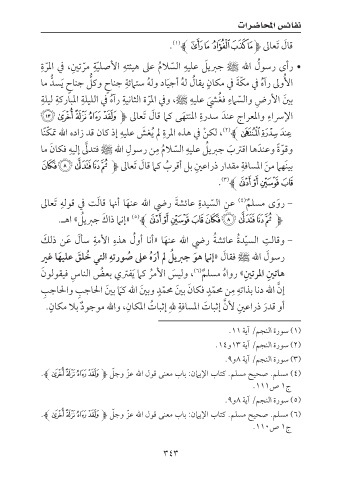 نفائس المحاضرات
قالَ تَعالى ﴿ مَا كَذَبَ الْفُؤَادُ مَا رَأَىٰ ﴾(١).
• رأى رسولُ الله ﷺ جبريلَ عليهِ السّلامُ على هيئتهِ الأصليّةِ مرّتين، في المرّةِ
الأُولى رآهُ في مكّةَ في مكانٍ يقالُ لهُ أجياد ولهُ ستمائةِ جناحٍ وكلُّ جناحٍ يَسدُّ ما
بينَ الأرضِ والسّماءِ فغُشيَ عليهِ ﷺ، وفي المرّة الثانيةِ رآهُ في الليلةِ المباركةِ ليلةِ
الإسراءِ والمعراجِ عندَ سدرةِ المنتهَى كما قالَ تَعالى ﴿ وَلَقَدْ رَآهُ نَزْلَةً أُخْرَىٰ ﴿١٣﴾
عِندَ سِدْرَةِ الْمُنتَهَىٰ ﴾(٢)، لكنْ في هذه المرةِ لم يُغشَ عليهِ إذ كان قد زاده الله تمكّنًا
وقوّةً وعندَها اقتربَ جبريلُ عليهِ السّلامُ مِن رسولِ الله ﷺ فتدلَّى إليهِ فكانَ ما
بينَهما منَ المسافةِ مقدار ذراعينِ بل أقربُ كما قالَ تَعالى ﴿ ثُمَّ دَنَا فَتَدَلَّىٰ ﴿٨﴾ فَكَانَ
قَابَ قَوْسَيْنِ أَوْ أَدْنَىٰ ﴾(٣).
- روَى مسلمٌ(٤) عنِ السّيدةِ عائشةَ رضي الله عنها أنها قالت في قولهِ تَعالى
﴿ ثُمَّ دَنَا فَتَدَلَّىٰ ﴿٨﴾ فَكَانَ قَابَ قَوْسَيْنِ أَوْ أَدْنَىٰ ﴾(٥) «إنما ذاكَ جبريلُ» اهـ.
- وقالتِ السيّدةُ عائشةُ رضي الله عنها «أنا أولُ هذهِ الأمةِ سألَ عَن ذلكَ
رسولَ الله ﷺ فقالَ «إنما هوَ جبريلُ لم أرَهُ على صُورتهِ التي خُلقَ عليهَا غير
هاتينِ المرتينِ» رواهُ مسلمٌ(٦)، وليسَ الأمرُ كما يَفتري بعضُ الناسِ فيقولونَ
إنَّ اللهَ دنا بذاتهِ مِن محمّدٍ فكانَ بينَ محمّدٍ وبينَ الله كما بينَ الحاجبِ والحاجبِ
أو قدرَ ذراعينِ لأنَّ إثباتَ المسافةِ للهِ إثباتُ المكانِ، والله موجودٌ بلا مكانٍ.
(١) سورة النجم/ آية ١١.
(٢) سورة النجم/ آية ١٣ و١٤.
(٣) سورة النجم/ آية ٨ و٩.
(٤) مسلم. صحيح مسلم. كتاب الإيمان: باب معنى قول الله عزّ وجلّ ﴿ وَلَقَدْ رَآهُ نَزْلَةً أُخْرَىٰ ﴾.
ج١ ص١١١.
(٥) سورة النجم/ آية ٨ و٩.
(٦) مسلم. صحيح مسلم. كتاب الإيمان: باب معنى قول الله عزّ وجلّ ﴿ وَلَقَدْ رَآهُ نَزْلَةً أُخْرَىٰ ﴾.
ج١ ص١١٠.
٣٤٣